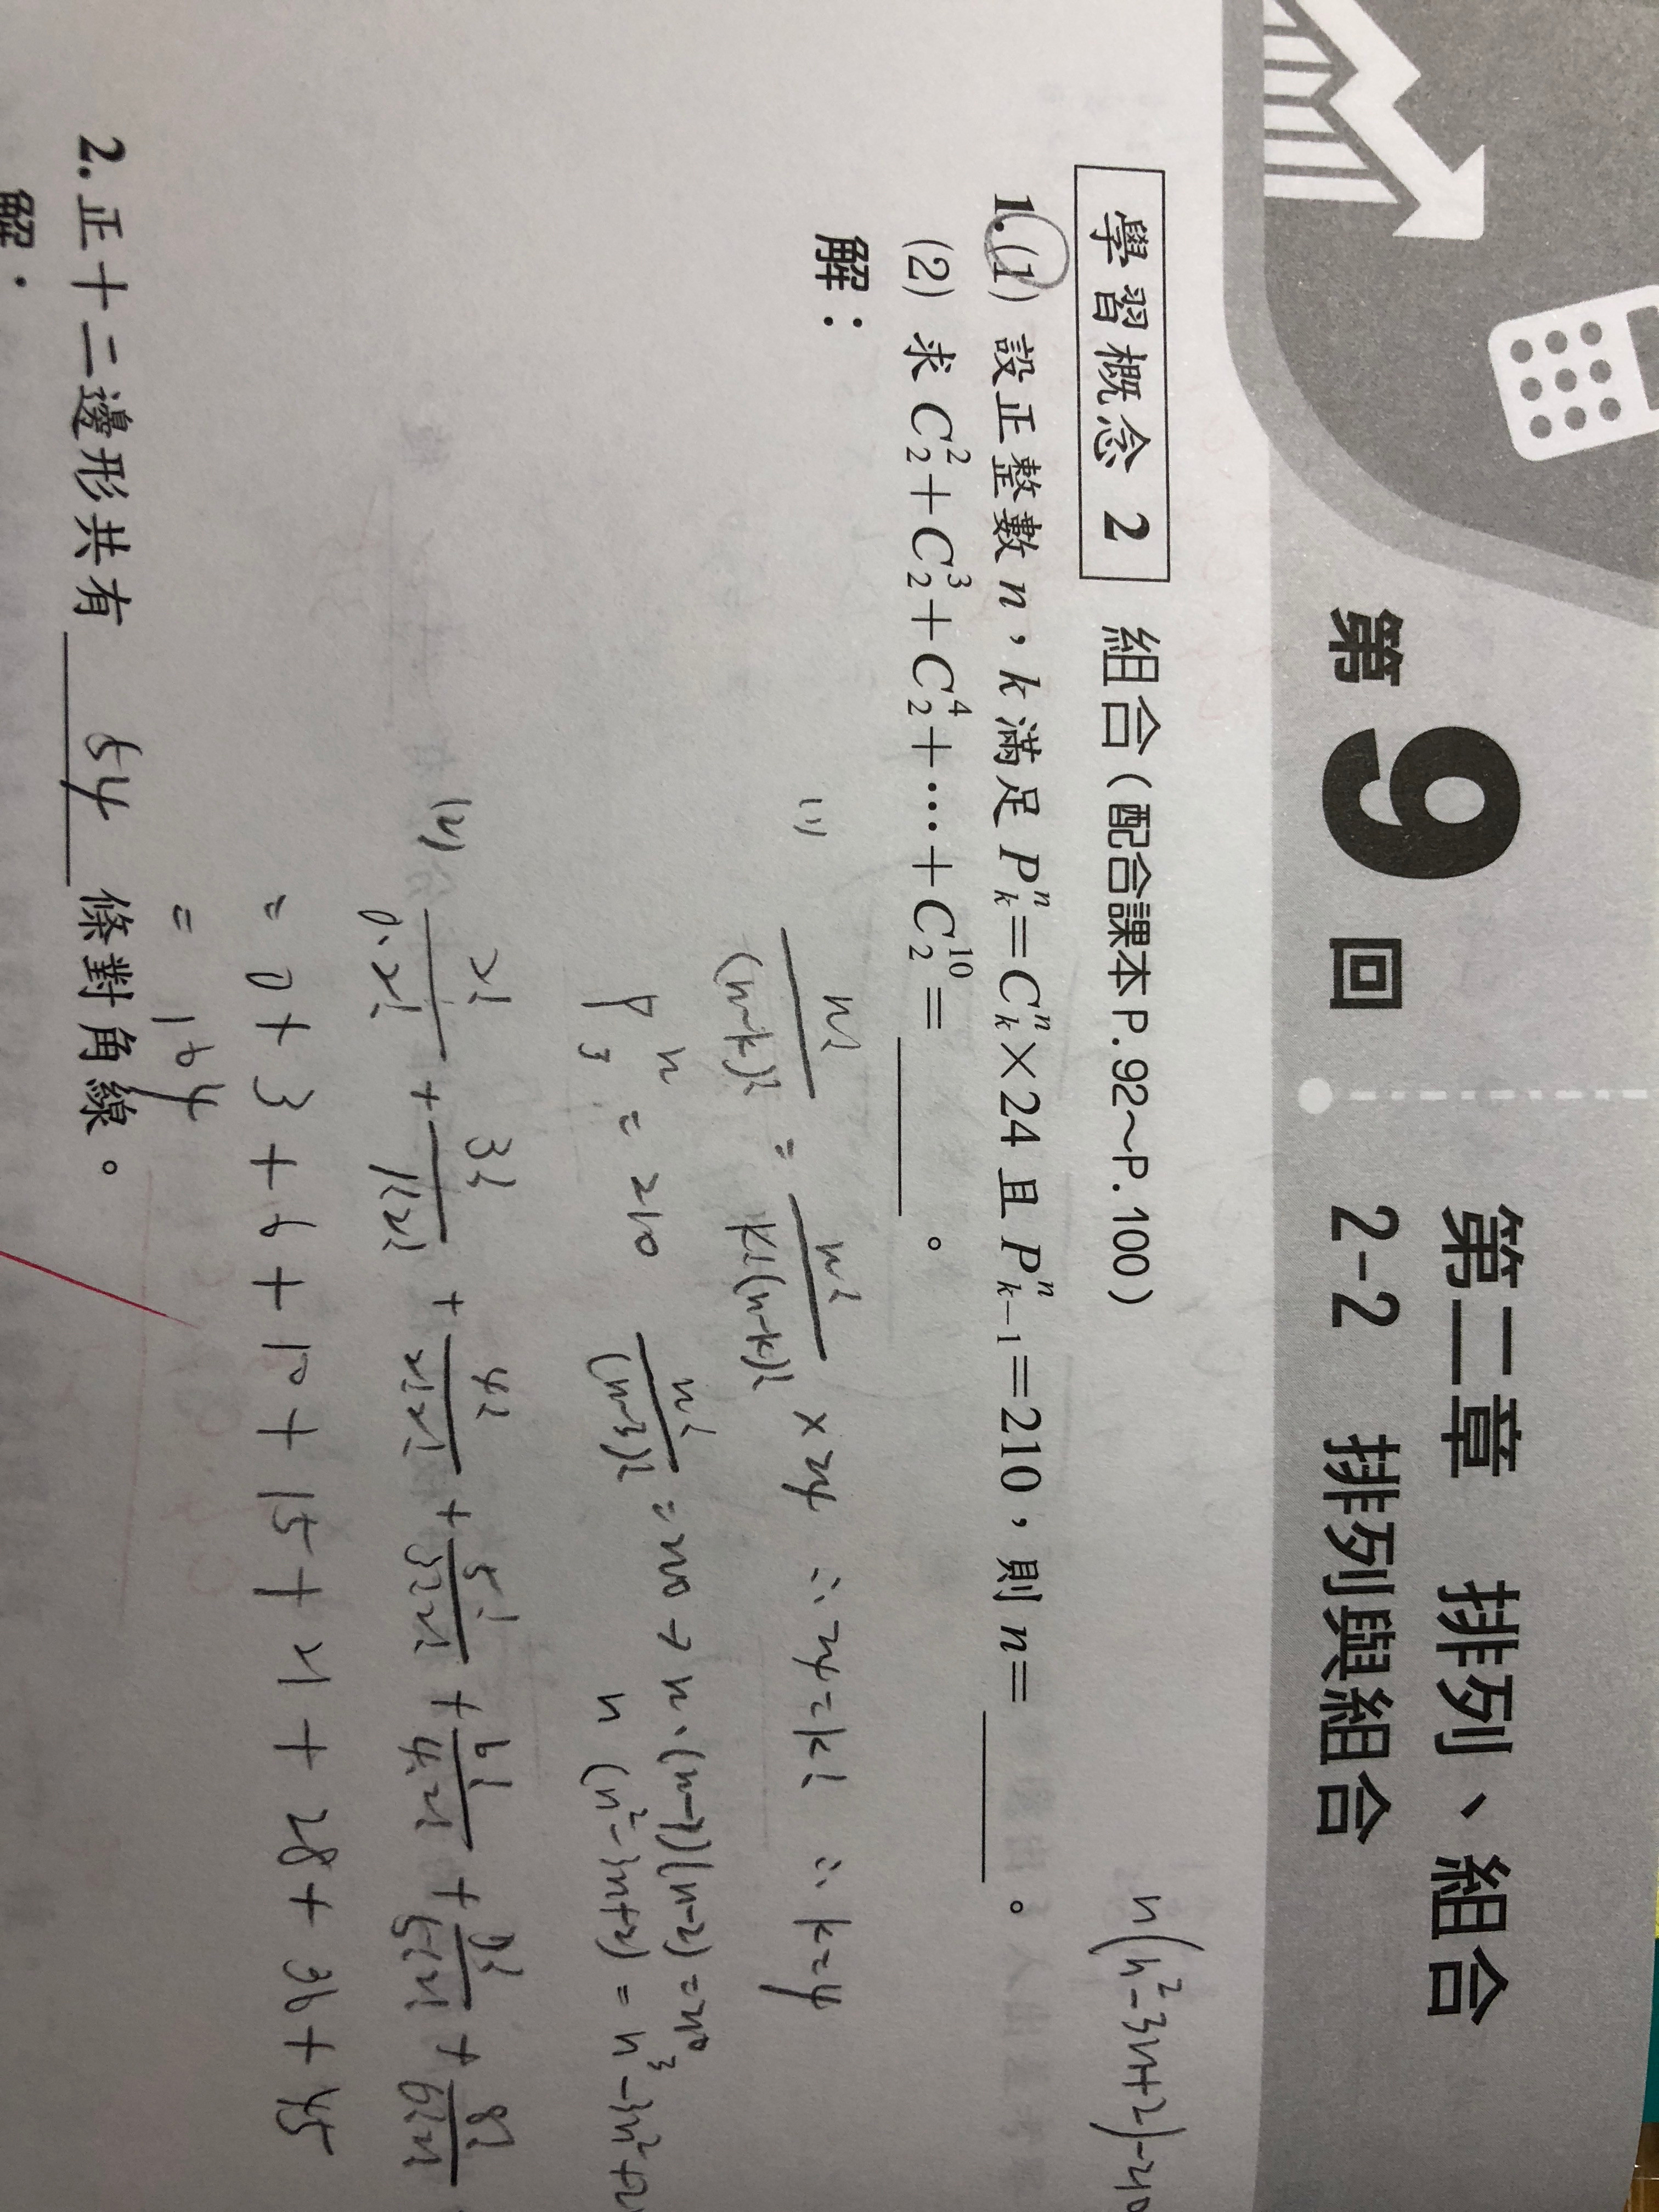 第9回
第二章 排列、組合
2-2 排列與組合
n(n²-3n+2)-210
學習概念 2 組合(配合課本P.92~P.100)
1.(1) 設正整數 n,k 滿足 Pₖⁿ=Cₖⁿ×24 且 Pₖ₋₁ⁿ=210,則 n=______。
(2) 求 C₂²+C₂³+C₂⁴+⋯+C₂¹⁰=______。
解:
(1) n!/(n-k)! = n!/k!(n-k)! × 24 ∴ 24=k! ∴ k=4
P₃ⁿ = 210 n!/(n-3)! = 210 → n·(n-1)(n-2)=210
n(n²-3n+2) = n³-3n²+2n
(2) 2!/0!2! + 3!/1!2! + 4!/2!2! + 5!/3!2! + 6!/4!2! + 7!/5!2! + 8!/6!2!
= 0 + 3 + 6 + 10 + 15 + 21 + 28 + 36 + 45
= 164
2.正十二邊形共有 54 條對角線。
解: